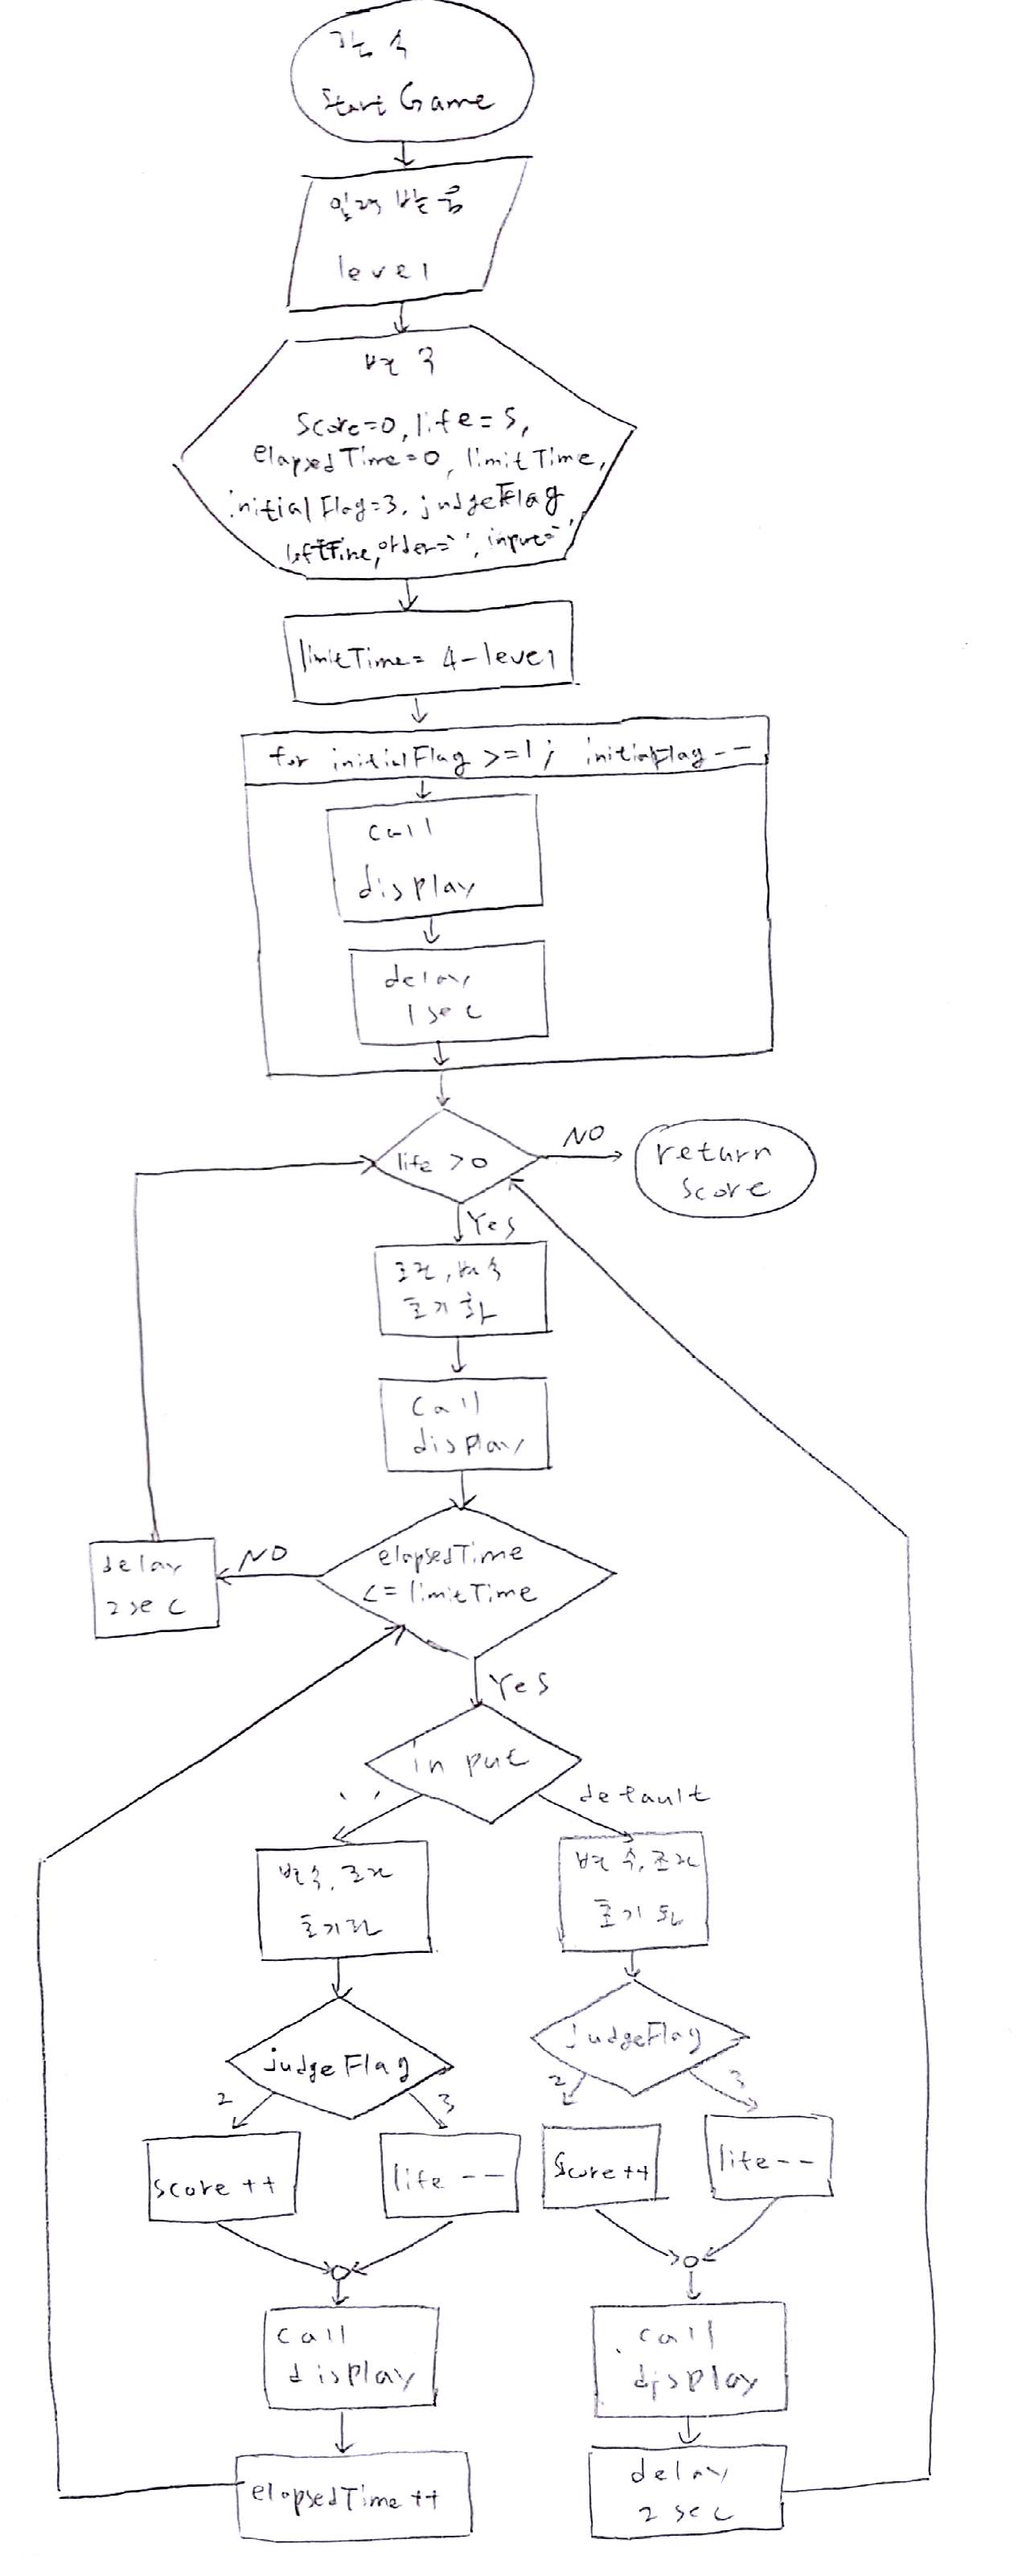 함수
start Game
입력 받음
level
변수
Score=0, life=5,
elapsedTime=0, limitTime,
initialFlag=3, judgeFlag
leftTime, order=' ', input=' '
limitTime= 4-level
for initialFlag >=1; initialFlag--
call
display
delay
1 sec
life >0
NO
return
score
Yes
조건, 변수
초기화
call
display
elapsedTime
<= limitTime
NO
delay
2 sec
Yes
input
' '
default
변수, 조건
초기화
변수, 조건
초기화
judgeFlag
2
3
judgeFlag
2
3
score ++
life --
Score ++
life --
call
display
call
display
elapsedTime ++
delay
2 sec